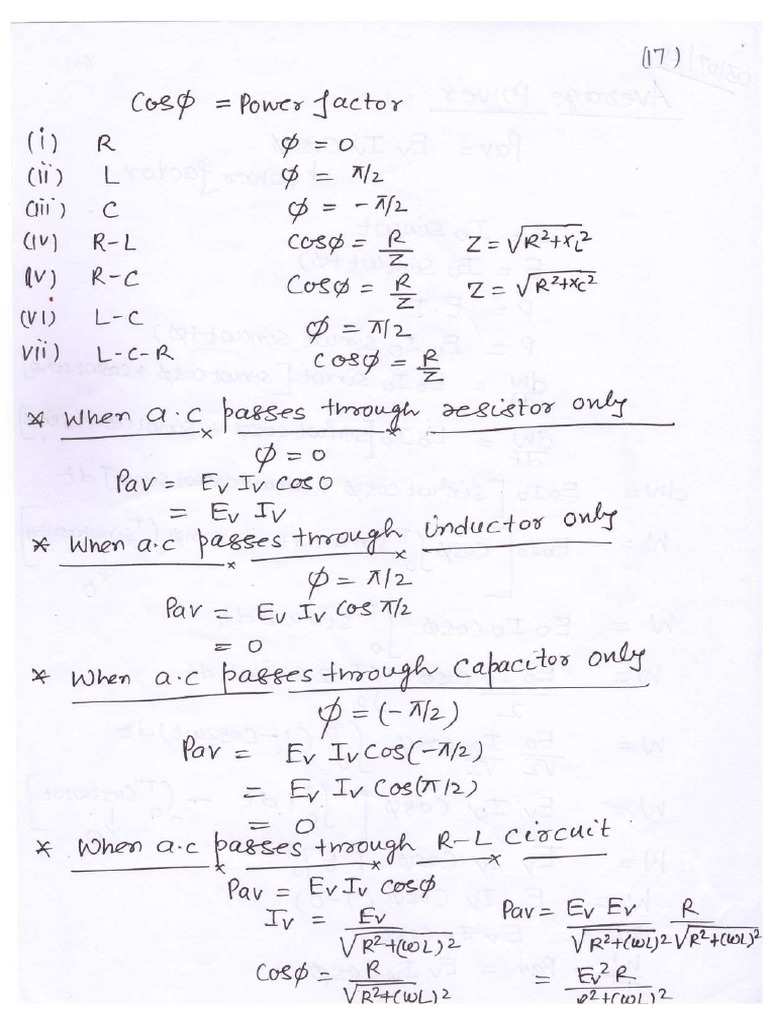 (17)
Cosφ = Power factor
(i) R φ = 0
(ii) L φ = π/2
(iii) C φ = -π/2
(iv) R-L Cosφ = R/Z Z = √R²+XL²
(v) R-C Cosφ = R/Z Z = √R²+XC²
(vi) L-C φ = π/2
vii) L-C-R Cosφ = R/Z
* When a.c passes through resistor only
φ = 0
Pav = Ev Iv Cos0
= Ev Iv
* When a.c passes through inductor only
φ = π/2
Pav = Ev Iv Cos π/2
= 0
* When a.c passes through Capacitor only
φ = (-π/2)
Pav = Ev Iv Cos(-π/2)
= Ev Iv Cos(π/2)
= 0
* When a.c passes through R-L Circuit
Pav = Ev Iv cosφ
Iv = Ev/√R²+(ωL)² Pav = Ev Ev/√R²+(ωL)² R/√R²+(ωL)²
Cosφ = R/√R²+(ωL)² = Ev² R/R²+(ωL)²